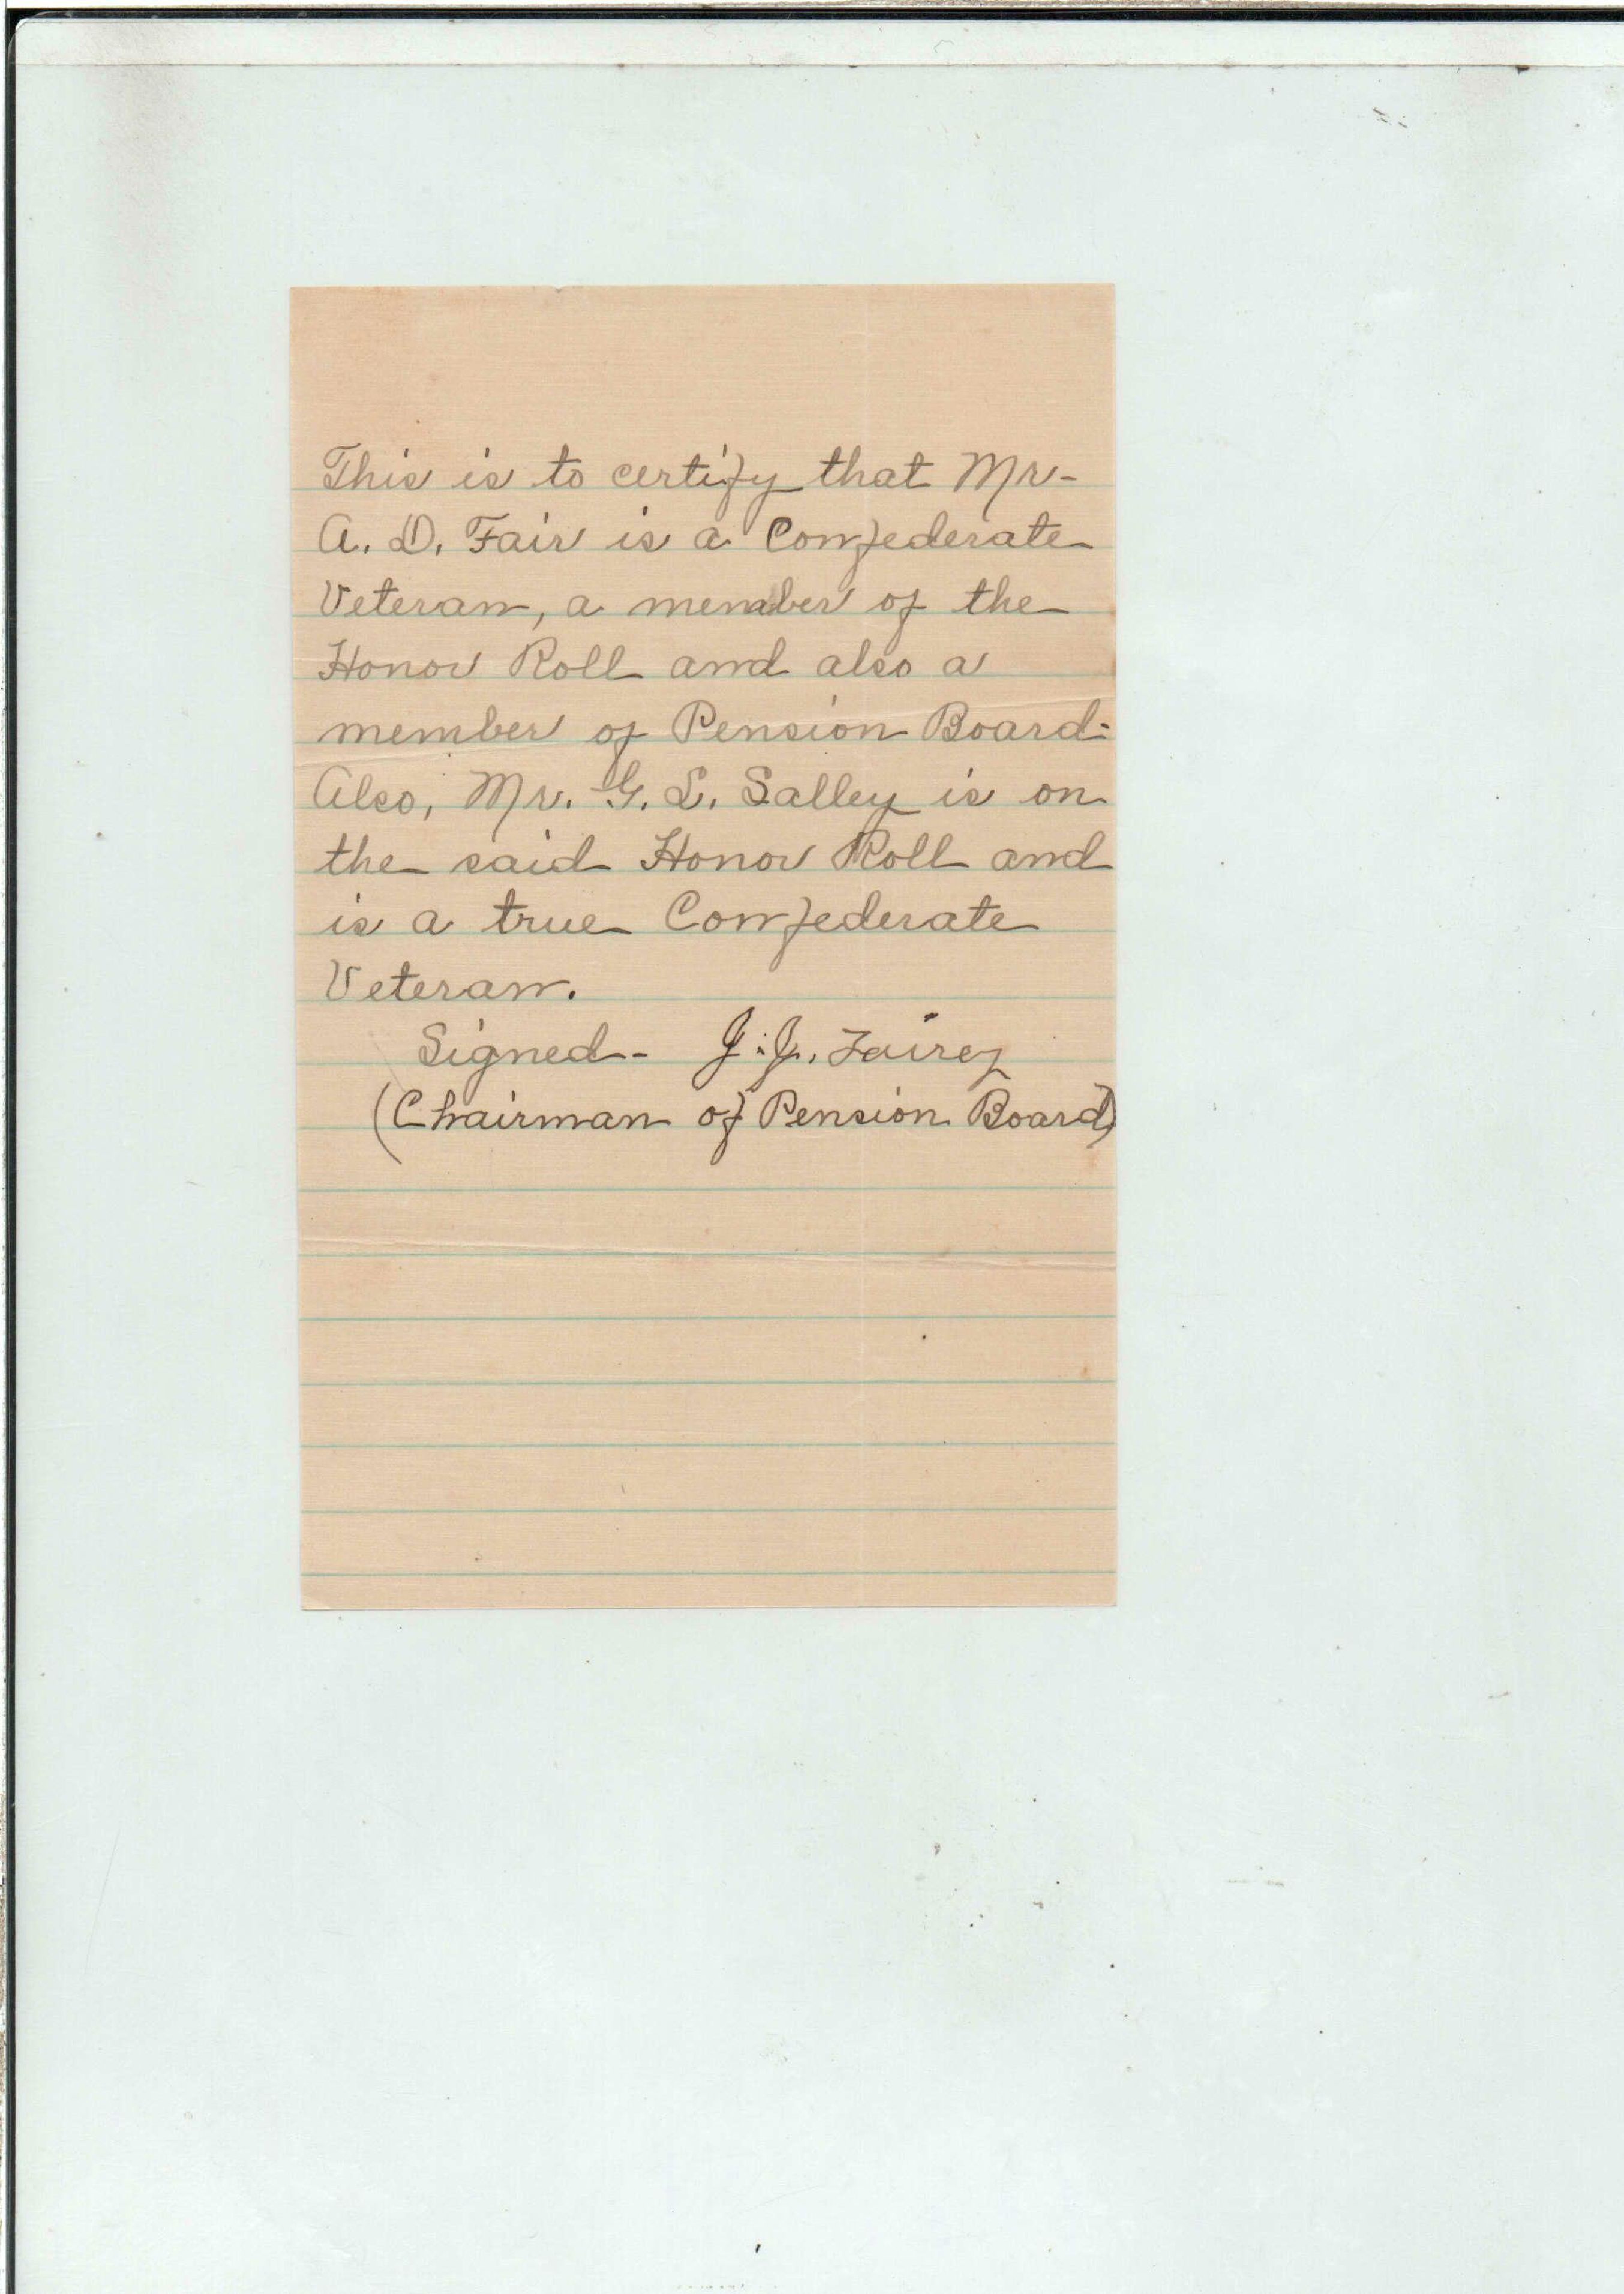 This is to certify that Mr-
A. D. Fair is a Confederate
Veteran, a member of the
Honor Roll and also a
member of Pension Board.
Also, Mr. G. L. Salley is on
the said Honor Roll and
is a true Confederate
Veteran.
Signed- J. J. Fairey
(Chairman of Pension Board)